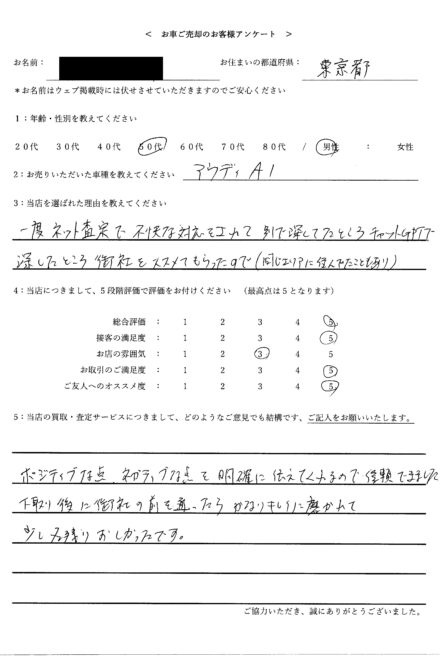 ＜ お車ご売却のお客様アンケート ＞
お名前： お住まいの都道府県： 東京都
＊お名前はウェブ掲載時には伏せさせていただきますのでご安心ください
1：年齢・性別を教えてください
20代 30代 40代 50代 60代 70代 80代 / 男性 ： 女性
2：お売りいただいた車種を教えてください アウディ A1
3：当店を選ばれた理由を教えてください
一度ネット査定で不快な対応をされて 別で探してたところチャットGPTで
探したところ御社をススメてもらったので(同じエリアに住んでたこともあり)
4：当店につきまして、5段階評価で評価をお付けください （最高点は5となります）
総合評価 ： 1 2 3 4 5
接客の満足度 ： 1 2 3 4 5
お店の雰囲気 ： 1 2 3 4 5
お取引のご満足度 ： 1 2 3 4 5
ご友人へのオススメ度 ： 1 2 3 4 5
5：当店の買取・査定サービスにつきまして、どのようなご意見でも結構です、ご記入をお願いいたします。
ポジティブな点 ネガティブな点を明確に伝えてくれるので信頼できました
下取り後に御社の前を通ったらかなりキレイに磨かれて
少し名残りおしかったです。
ご協力いただき、誠にありがとうございました。